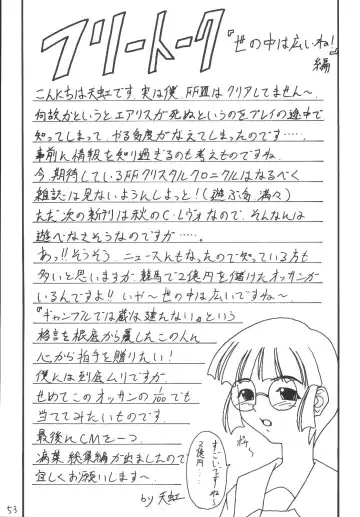 フリートーク
『世の中は広いね!』
編
こんにちは天虹です。実は僕、FFⅦはクリアしてません〜。
何故かというとエアリスが死ぬというのをプレイの途中で
知ってしまって、やる気がなえてしまったのです……。
事前に情報を知り過ぎるのも考えものですね。
今、期待しているFFクリスタルクロニクルはなるべく
雑誌は見ないようんしよっと!(遊ぶ気満々)
ただ次の新刊は秋のC・レヴォなので、そんなんは
遊べなさそうなのですが……。
あっ!!そうそう、ニュースんもなったので知っている方も
多いと思いますが、競馬で2億円を儲けたオッサンが
いるんですよ!!いや〜世の中は広いですね〜。
『ギャンブルでは蔵は建たない』という
格言を根底から覆したこの人に
心から拍手を贈りたい!
僕には到底ムリですが、
せめてこのオッサンの1/100でも
当ててみたいものです。
最後にCMを一つ。
満葉総集編が出ましたので
宜しくお願いします〜。
by天虹
すごいですね〜
2億円…。
ほへ〜
53